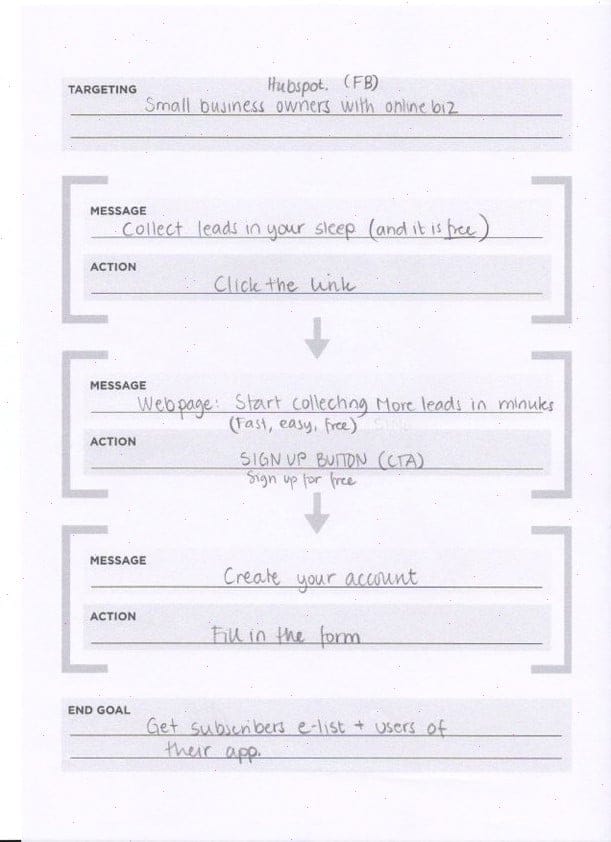 Hubspot. (FB)
TARGETING
Small business owners with online biz
MESSAGE
Collect leads in your sleep (and it is free)
ACTION
Click the link
MESSAGE
Webpage: Start collecting More leads in minutes
(Fast, easy, free)
ACTION
SIGN UP BUTTON (CTA)
Sign up for free
MESSAGE
Create your account
ACTION
Fill in the form
END GOAL
Get subscribers e-list + users of
their app.